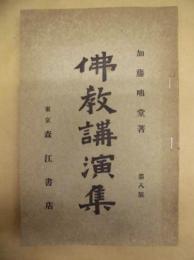 加藤咄堂著
佛教講演集
第八版
東京 森江書店